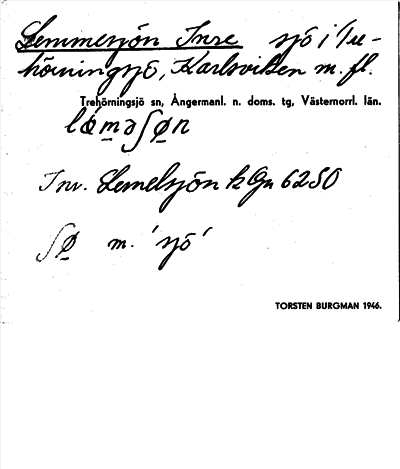 Lemmesjön Inre sjö i Tre-
hörningsjö, Karlsviken m. fl.
Trehörningsjö sn, Ångermanl. n. doms. tg, Västernorrl. län.
Inv. Lemelsjön k Gu 6250
ʃø̠ m. 'sjö'
TORSTEN BURGMAN 1946.